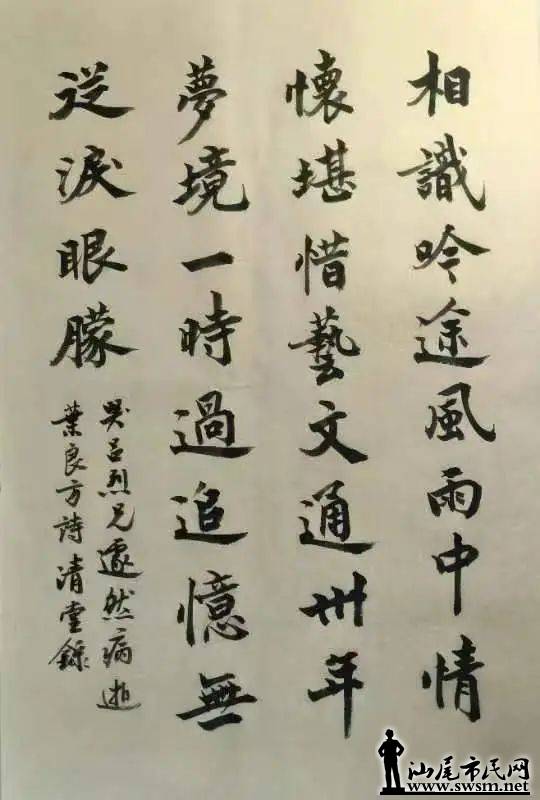 相識吟途風雨中情
懷堪惜藝文通卅年
夢境一時過追憶無
從淚眼朦
哭呂烈兄遽然病逝
葉良方詩清堂錄
汕尾市民网
www.swsm.net